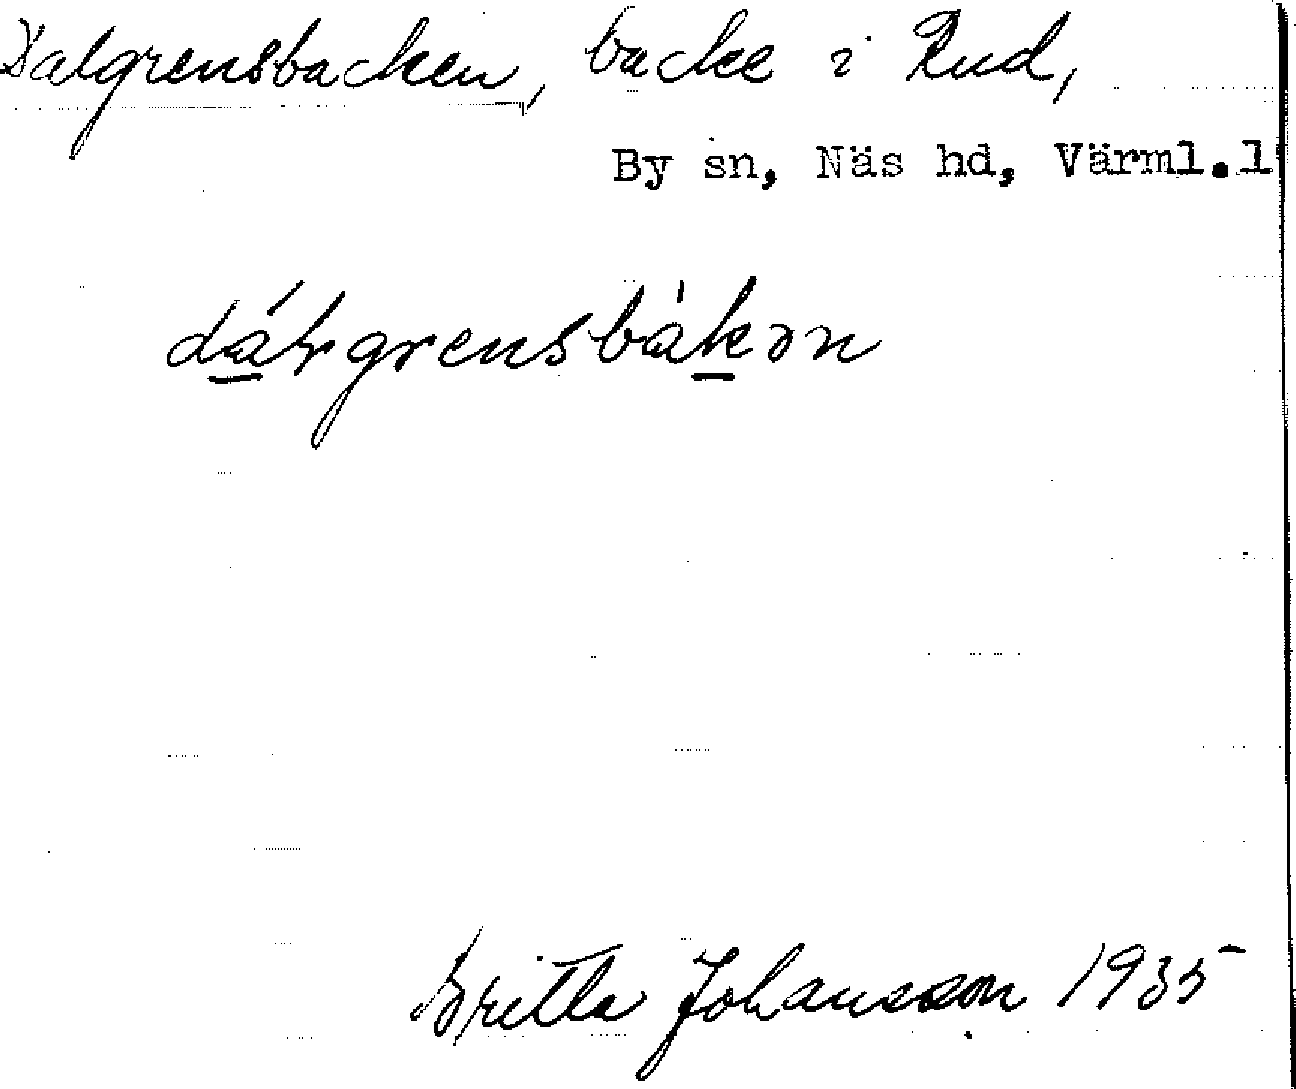 Dalgrensbacken, backe i Rud,
By sn, Näs hd, Värml.l
dálgrensbàkən
Britta Johansson 1935